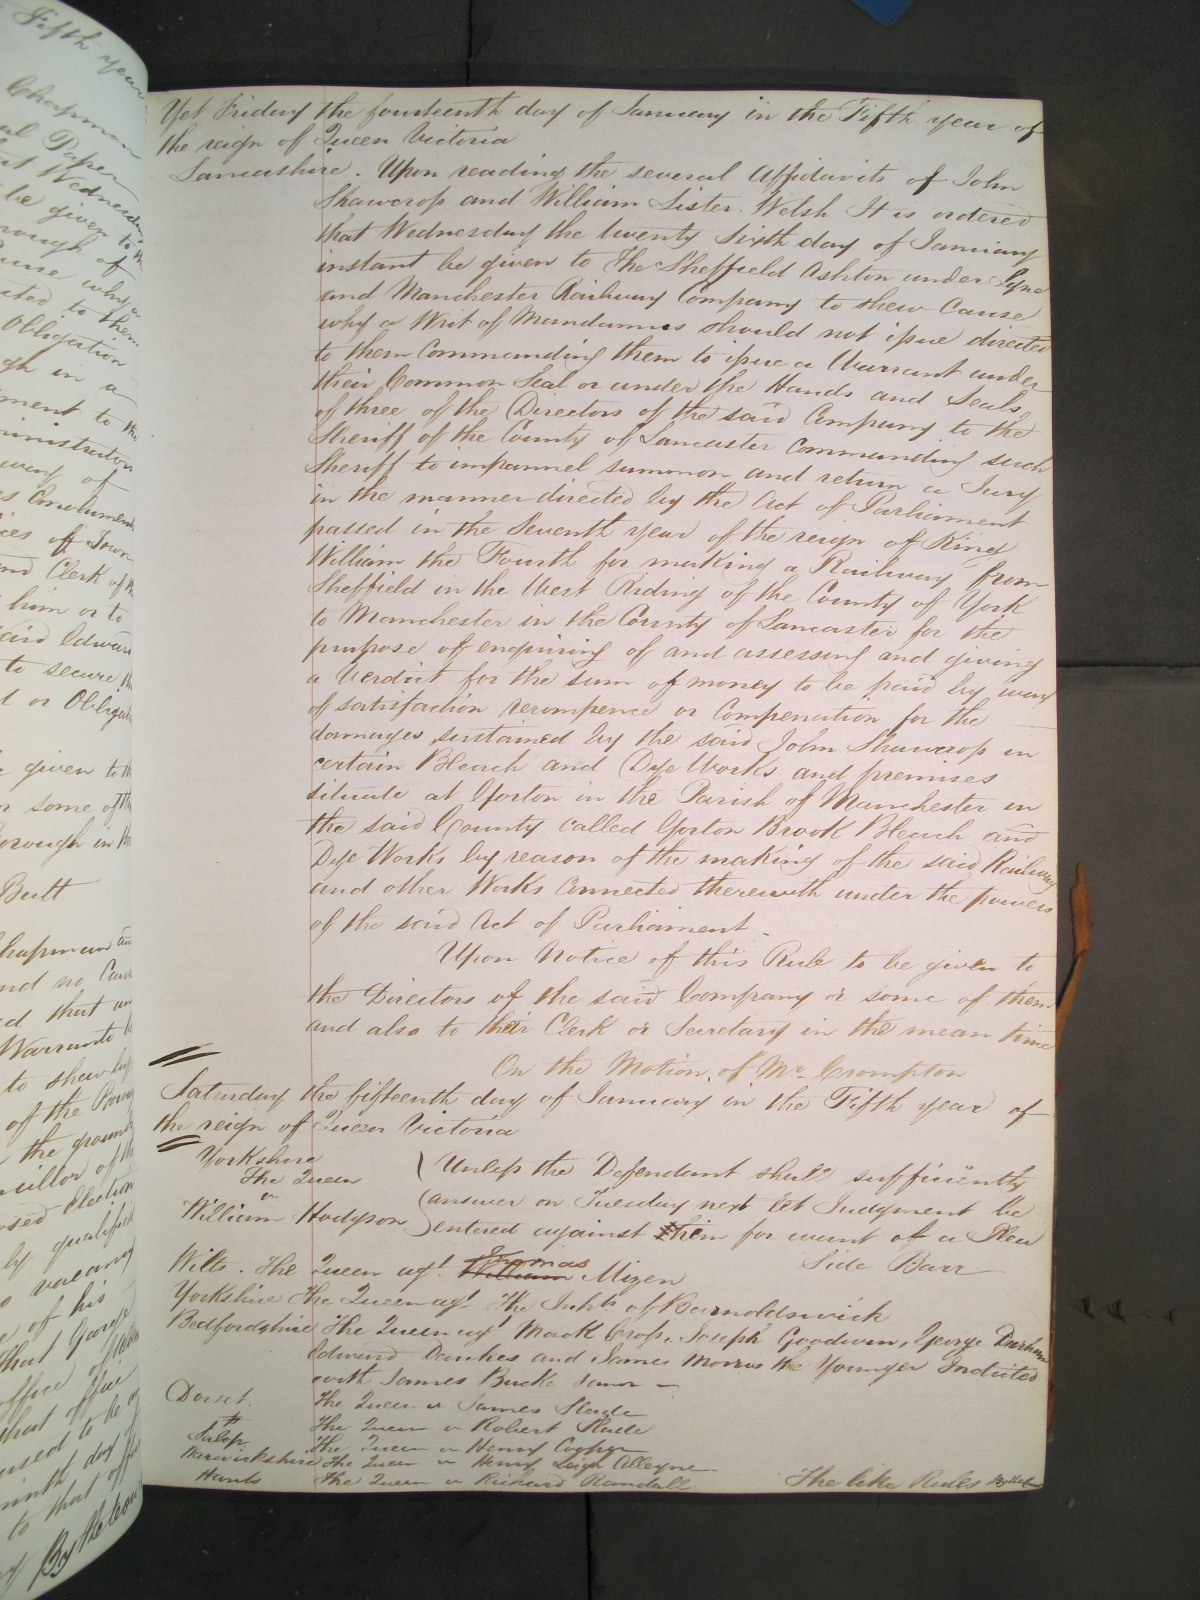 Yet Friday the fourteenth day of January in the Fifth year of
the reign of Queen Victoria
Lancashire. Upon reading the several Affidavits of John
Shawcross and William Lister Welsh It is ordered
that Wednesday the twenty sixth day of January
instant be given to The Sheffield Ashton under Lyne
and Manchester Railway Company to shew Cause
why a Writ of Mandamus should not issue directed
to them Commanding them to issue a Warrant under
their Common Seal or under the Hands and Seals
of three of the Directors of the said Company to the
Sheriff of the County of Lancaster commanding such
Sheriff to impannel summon and return a Jury
in the manner directed by the Act of Parliament
passed in the Seventh year of the reign of King
William the Fourth for making a Railway from
Sheffield in the West Riding of the County of York
to Manchester in the County of Lancaster for the
purpose of enquiring of and assessing and giving
a Verdict for the sum of money to be paid by way
of satisfaction recompence or Compensation for the
damages sustained by the said John Shawcross in
certain Bleach and Dye Works and premises
situate at Gorton in the Parish of Manchester in
the said County called Gorton Brook Bleach and
Dye Works by reason of the making of the said Railway
and other Works Connected therewith under the powers
of the said Act of Parliament.
Upon Notice of this Rule to be given to
the Directors of the said Company or some of them
and also to their Clerk or Secretary in the mean time
On the Motion of Mr. Crompton
Saturday the fifteenth day of January in the Fifth year of
the reign of Queen Victoria
Yorkshire
The Queen
v
William Hodgson
Unless the Defendant shall sufficiently
answer on Tuesday next let Judgment be
entered against him for want of a Plea
Side Barr
Wilts. The Queen agt. William Thomas Mizen
Yorkshire The Queen agt. The Inhts of Barnoldswick
Bedfordshire The Queen agt Mark Cross, Joseph Goodwin, George Durham
Edward Dankes and James Morris the Younger Indicted
with James Buck
Dorset. The Queen v James Slade
The Queen v Robert Slade
Salop The Queen v Henry Cooper
Warwickshire The Queen v Henry Leigh Alleyne
Hants The Queen v Richard Randall The like Rules
Fifth year
Chapman
Paper
Wednesday
be given to
Obligation
in a
ment to the
ministration
way of
Emoluments
ices of Town
Clerk of
him or to
said Edward
to secure
or Obligat
given to
or some of
orough in
Butt
hapman
and no Cause
that
Warranto
to shew
of the
the ground
ncillor of
Election
qualified
vacancy
of his
that George
office of
that office
used to be
ninth day
to that
By the Court